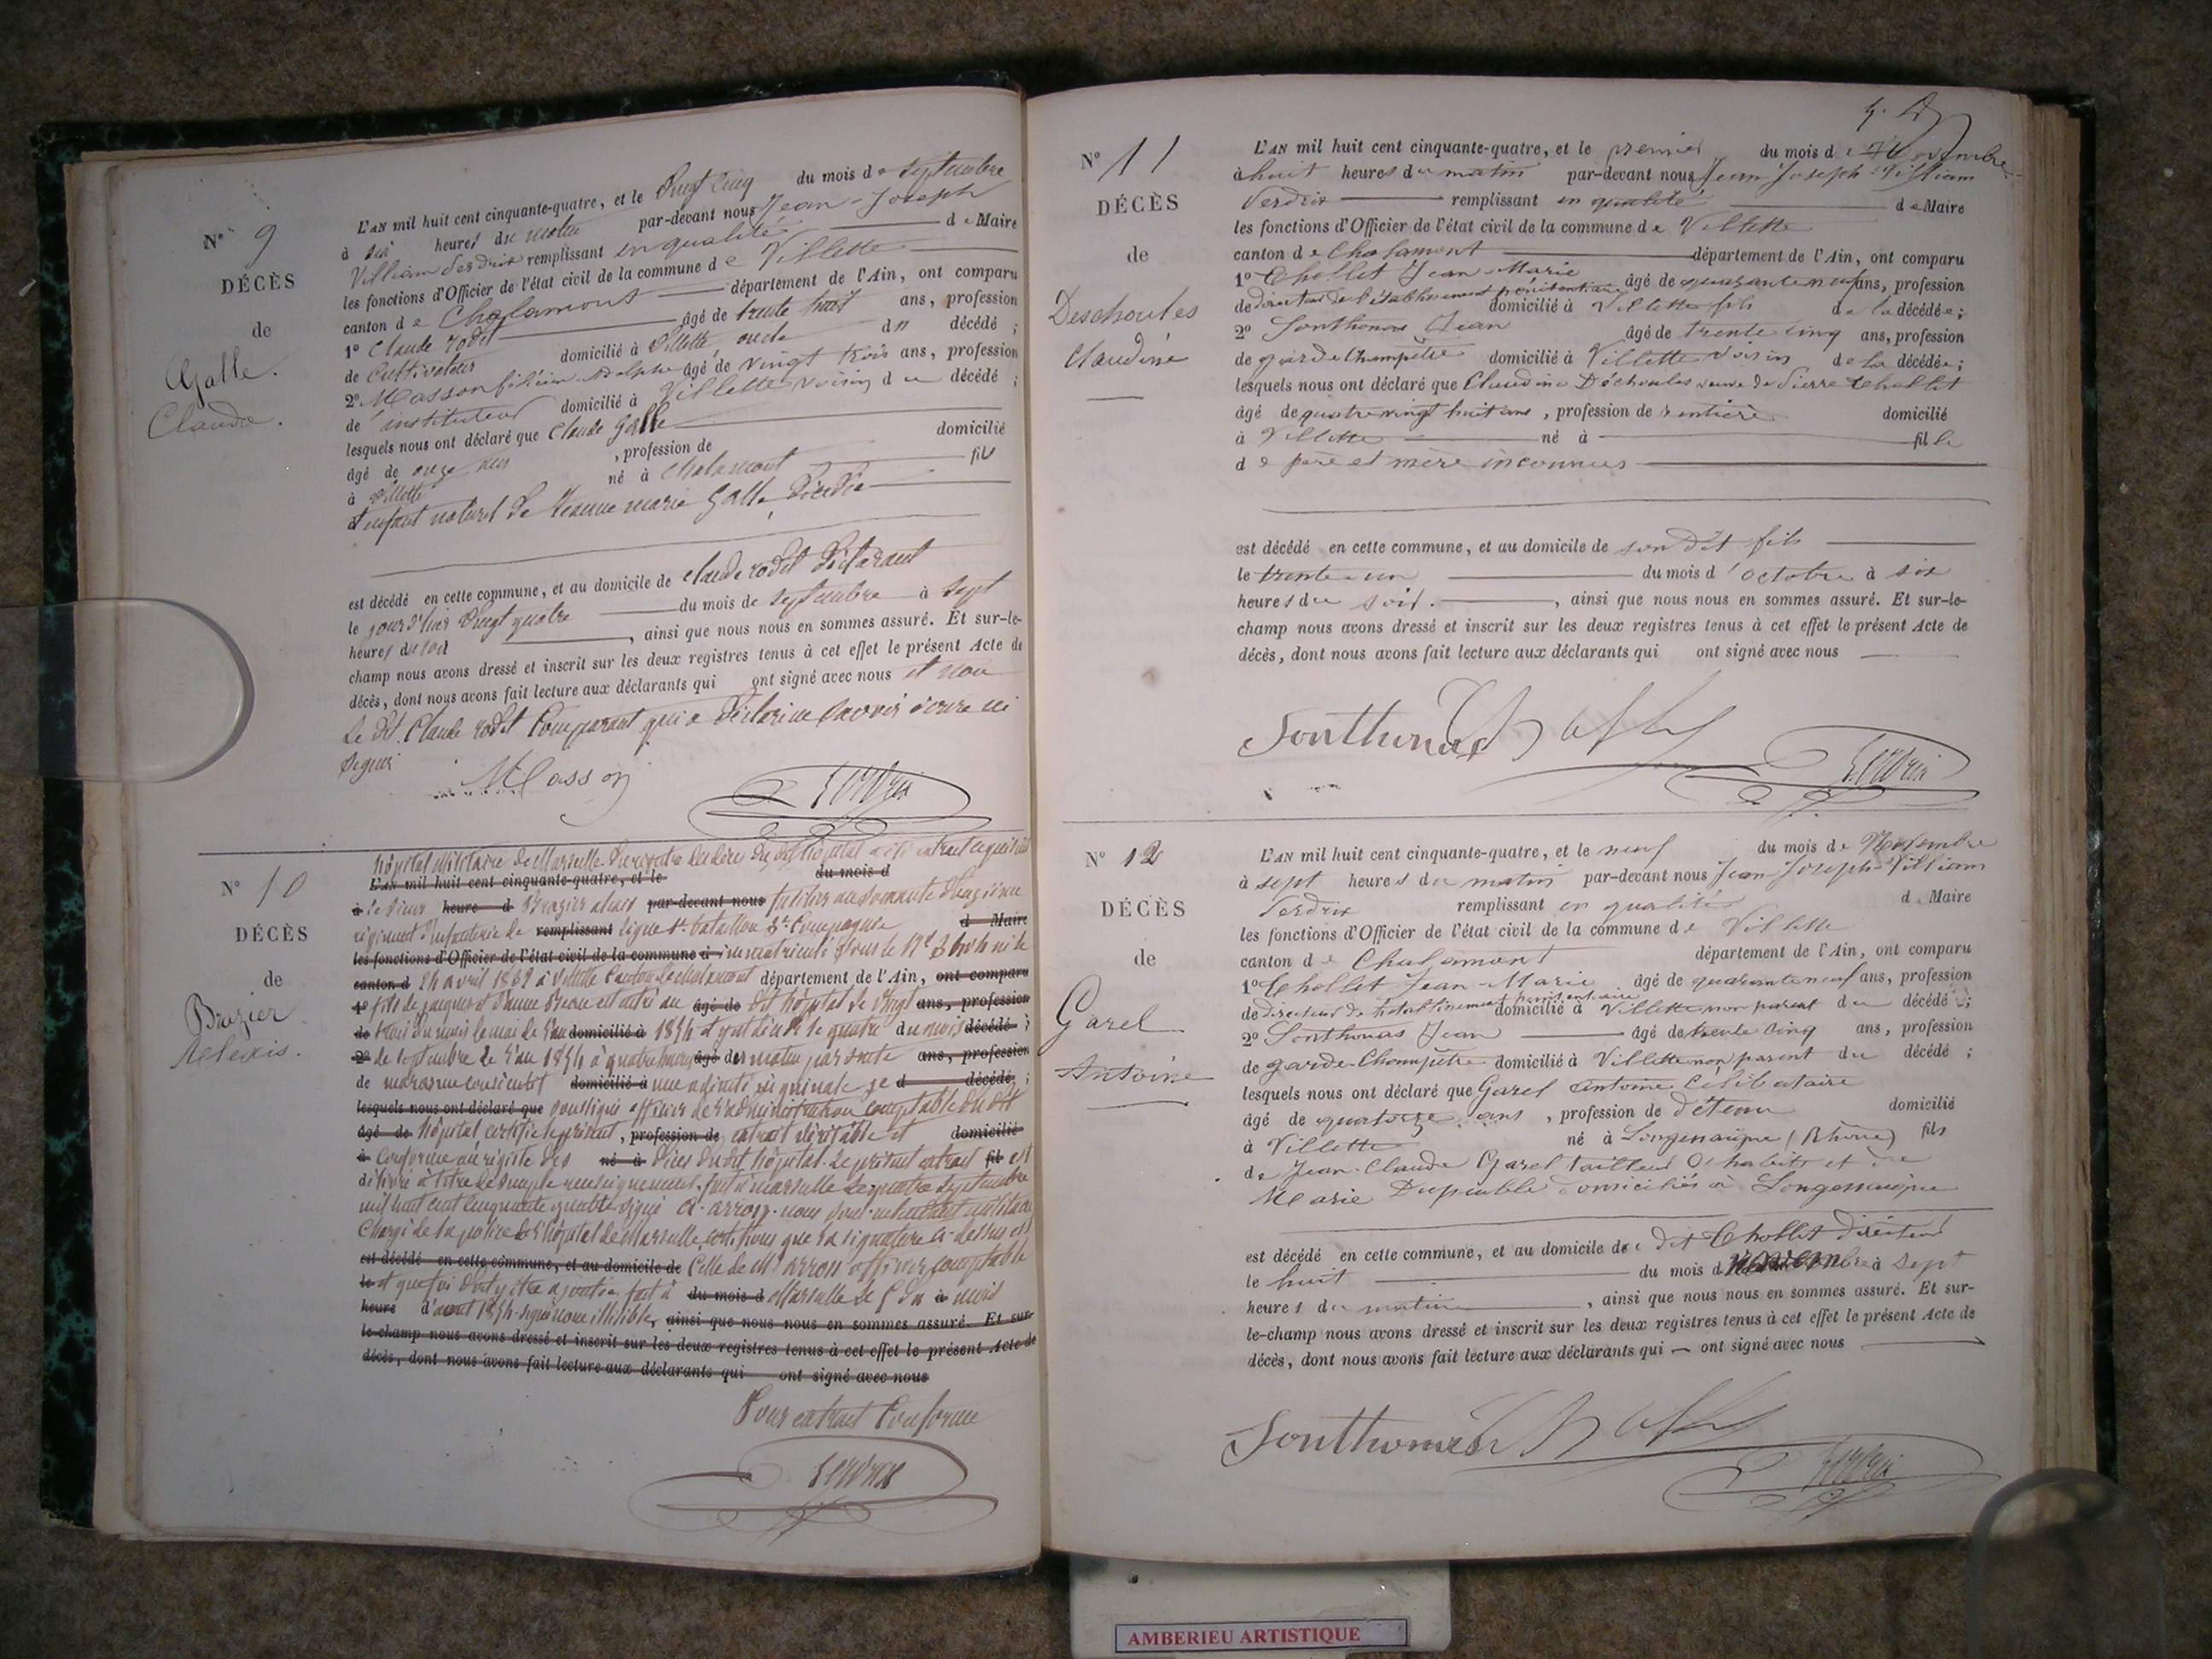 N° 9
DÉCÈS
de
Galle.
Claude.
L'AN mil huit cent cinquante-quatre, et le Vingt Cinq du mois de septembre
à six heures du matin par-devant nous Jean-Joseph
William Perdrix remplissant en qualité de Maire
les fonctions d'Officier de l'état civil de la commune de Villette
canton de Chalamont département de l'Ain, ont comparu
1° Claude rodet âgé de trente huit ans, profession
de Cultivateur domicilié à Villette, oncle du décédé ;
2° Masson Adolphe âgé de vingt trois ans, profession
de instituteur domicilié à Villette voisin du décédé ;
lesquels nous ont déclaré que Claude Galle
âgé de onze ans , profession de domicilié
à Villette né à Chalamont fils
d enfant naturel de Jeanne marie Galle, décédée
est décédé en cette commune, et au domicile de Claude rodet déclarant
le jour d'hier Vingt quatre du mois de septembre à sept
heures du soir , ainsi que nous nous en sommes assuré. Et sur-le-
champ nous avons dressé et inscrit sur les deux registres tenus à cet effet le présent Acte de
décès, dont nous avons fait lecture aux déclarants qui ont signé avec nous et non
le dit Claude rodet Comparant qui a déclaré ne savoir écrire ni
signer
Masson
Perdrix
N° 10
DÉCÈS
de
Brazier
Alexis.
hôpital Militaire de Marseille. du registre des décès du dit hôpital a été extrait ce qui suit
L'AN mil huit cent cinquante-quatre, et le du mois d
à le sieur heure d Brazier alexis par-devant nous fusilier au soixante d'onzième
régiment d'infanterie de remplissant ligne 1er bataillon 3e Compagnie d Maire
les fonctions d'Officier de l'état civil de la commune à immatriculé sous le N°
canton d 24 avril 1832 à Villette Canton de Chalamont département de l'Ain, ont comparu
1° fils de jacques et d'anne entré au âgé de dit hôpital le Vingt ans, profession
de trois du mois de mai de l'an domicilié à 1854 y est décédé le quatre du mois décédé ;
2° de septembre de l'an 1854 à quatre heures âgé de du matin par suite ans, profession
de marasme consécutif domicilié à une d décédé ;
lesquels nous ont déclaré que soussigné officier de l'administration comptable du dit
âgé de hôpital, certifie le présent , profession de extrait véritable et domicilié
à Conforme au registre des né à décès du dit hôpital. le présent extrait fil est
délivré à titre de simple renseignement. fait à marseille le quatre septembre
mil huit cent cinquante quatre signé nous sous-intendant militaire
Chargé de la police de l'hôpital de Marseille, certifions que la signature ci-dessus est
est décédé en cette commune, et au domicile de Celle de Mr officier comptable
le et que foi doit y être ajoutée fait à du mois d Marseille le 5 du à mois
heure d'aout 1854. signé nom illisible, ainsi que nous nous en sommes assuré. Et sur
le-champ nous avons dressé et inscrit sur les deux registres tenus à cet effet le présent Acte de
décès, dont nous avons fait lecture aux déclarants qui ont signé avec nous
Pour extrait Conforme
Perdrix
N° 11
DÉCÈS
de
Deschoules
Claudine
L'AN mil huit cent cinquante-quatre, et le premier du mois de Novembre
à huit heures du matin par-devant nous Jean Joseph William
Perdrix remplissant en qualité de Maire
les fonctions d'Officier de l'état civil de la commune de Villette
canton de Chalamont département de l'Ain, ont comparu
1° Chollet Jean-Marie âgé de quarante neuf ans, profession
de directeur de l'établissement pénitentiaire domicilié à Villette fils de la décédée ;
2° Sonthonas Jean âgé de trente cinq ans, profession
de garde Champêtre domicilié à Villette voisin de la décédée ;
lesquels nous ont déclaré que Claudine Déchoules veuve de Pierre Chollet
âgé de quatre vingt huit ans , profession de rentière domicilié
à Villette né à fille
de père et mère inconnus
est décédé en cette commune, et au domicile de son dit fils
le trente un du mois d'octobre à six
heures du soir. , ainsi que nous nous en sommes assuré. Et sur-le-
champ nous avons dressé et inscrit sur les deux registres tenus à cet effet le présent Acte de
décès, dont nous avons fait lecture aux déclarants qui ont signé avec nous
Sonthonas Chollet
Perdrix
N° 12
DÉCÈS
de
Garel
Antoine
L'AN mil huit cent cinquante-quatre, et le neuf du mois de Novembre
à sept heures du matin par-devant nous Jean-Joseph-William
Perdrix remplissant en qualité d Maire
les fonctions d'Officier de l'état civil de la commune de Villette
canton de Chalamont département de l'Ain, ont comparu
1° Chollet Jean-Marie âgé de quarante neuf ans, profession
de directeur de l'établissement pénitentiaire domicilié à Villette non parent du décédé ;
2° Sonthonas Jean âgé de trente cinq ans, profession
de garde-Champêtre domicilié à Villette non parent du décédé ;
lesquels nous ont déclaré que Garel Antoine Célibataire
âgé de quatorze ans , profession de détenu domicilié
à Villette né à Longessaigne (Rhône) fils
de Jean-Claude Garel tailleur d'habits et de
Marie Dupeuble domiciliés à Longessaigne
est décédé en cette commune, et au domicile de dit Chollet directeur
le huit du mois de novembre à sept
heures du matin , ainsi que nous nous en sommes assuré. Et sur-
le-champ nous avons dressé et inscrit sur les deux registres tenus à cet effet le présent Acte de
décès, dont nous avons fait lecture aux déclarants qui ont signé avec nous
Sonthonas Chollet
Perdrix
AMBERIEU ARTISTIQUE